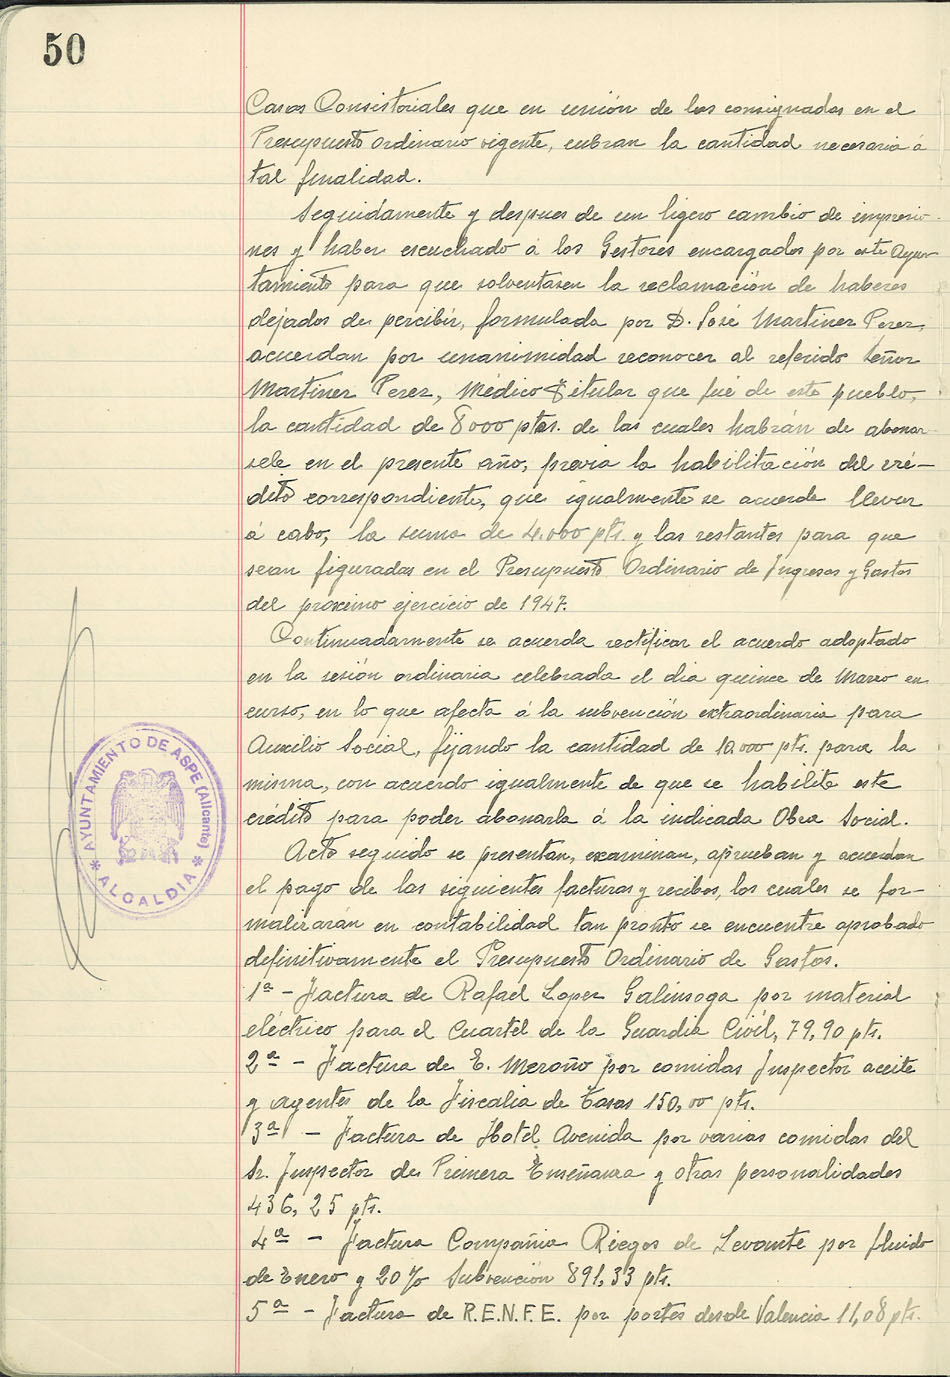 50
Casas Consistoriales que en unión de las consignadas en el
Presupuesto ordinario vigente, cubran la cantidad necesaria á
tal finalidad.
Seguidamente y despues de un ligero cambio de impresio-
nes y haber escuchado á los Gestores encargados por este Ayun-
tamiento para que solventasen la reclamación de haberes
dejados de percibir, formulada por D. José Martinez Perez,
acuerdan por unanimidad reconocer al referido señor
Martinez Perez, Médico Titular que fué de este pueblo,
la cantidad de 8000 ptas. de las cuales habrán de abonar-
sele en el presente año, previa la habilitación del cré-
dito correspondiente, que igualmente se acuerda llevar
á cabo, la suma de 4.000 pts. y las restantes para que
sean figuradas en el Presupuesto Ordinario de Ingresos y Gastos
del proximo ejercicio de 1947.
Continuadamente se acuerda rectificar el acuerdo adoptado
en la sesión ordinaria celebrada el dia quince de Marzo en
curso, en lo que afecta á la subvención extraordinaria para
Auxilio Social, fijando la cantidad de 10.000 pts. para la
misma, con acuerdo igualmente de que se habilite este
crédito para poder abonarla á la indicada Obra Social.
Acto seguido se presentan, examinan, aprueban y acuerdan
el pago de las siguientes facturas y recibos, los cuales se for-
malizarán en contabilidad tan pronto se encuentre aprobado
definitivamente el Presupuesto Ordinario de Gastos.
1ª - Factura de Rafael Lopez Galinsoga por material
eléctrico para el Cuartel de la Guardia Civil, 79,90 pts.
2ª - Factura de E. Meroño por comidas Inspector aceite
y agentes de la Fiscalia de Tasas 150,00 pts.
3ª - Factura de Hotel Avenida por varias comidas del
Sr. Inspector de Primera Enseñanza y otras personalidades
436,25 pts.
4ª - Factura Compañia Riegos de Levante por fluido
de Enero y 20% Subvención 891,33 pts.
5ª - Factura de R.E.N.F.E. por portes desde Valencia 11,08 pts.
AYUNTAMIENTO DE ASPE (Alicante)
* ALCALDIA *